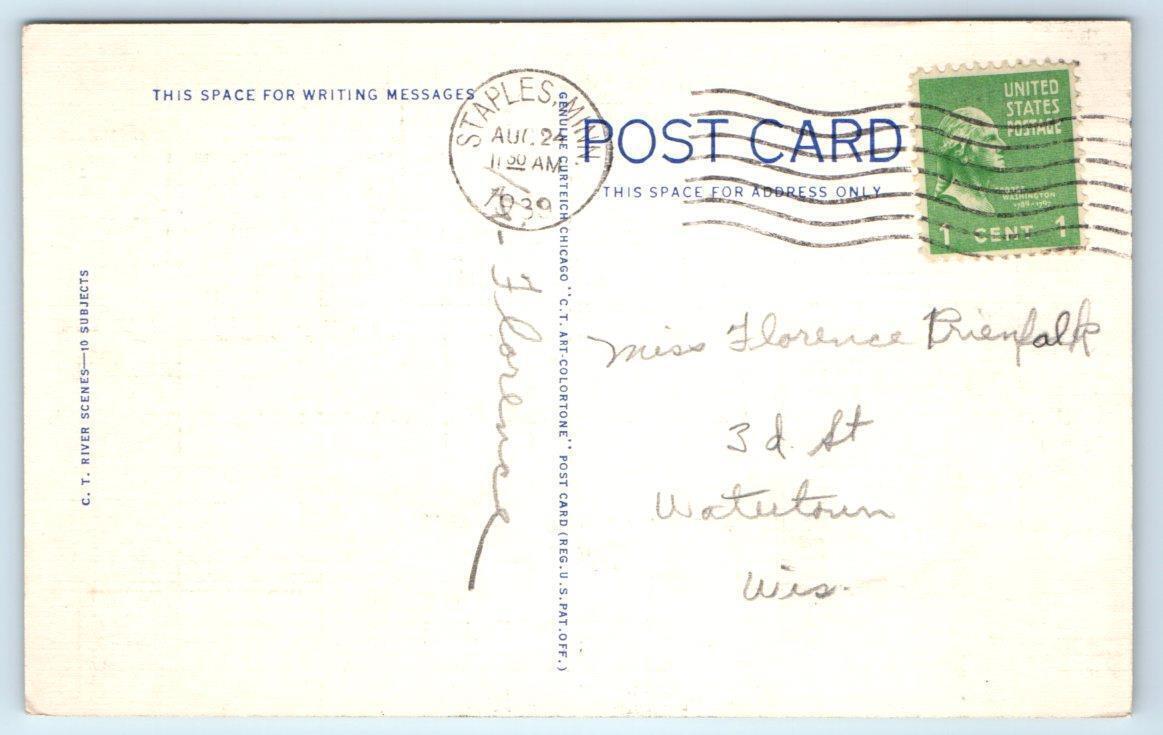 THIS SPACE FOR WRITING MESSAGES
C. T. RIVER SCENES—10 SUBJECTS
STAPLES, MINN.
AUG. 24
11 30 AM
1939
Florence
GENUINE CURTEICH-CHICAGO "C.T. ART-COLORTONE" POST CARD (REG. U.S. PAT. OFF.)
POST CARD
THIS SPACE FOR ADDRESS ONLY
UNITED
STATES
POSTAGE
WASHINGTON
1789-1797
1 CENT 1
Miss Florence Brienfalk
3d. St
Watertown
Wis.